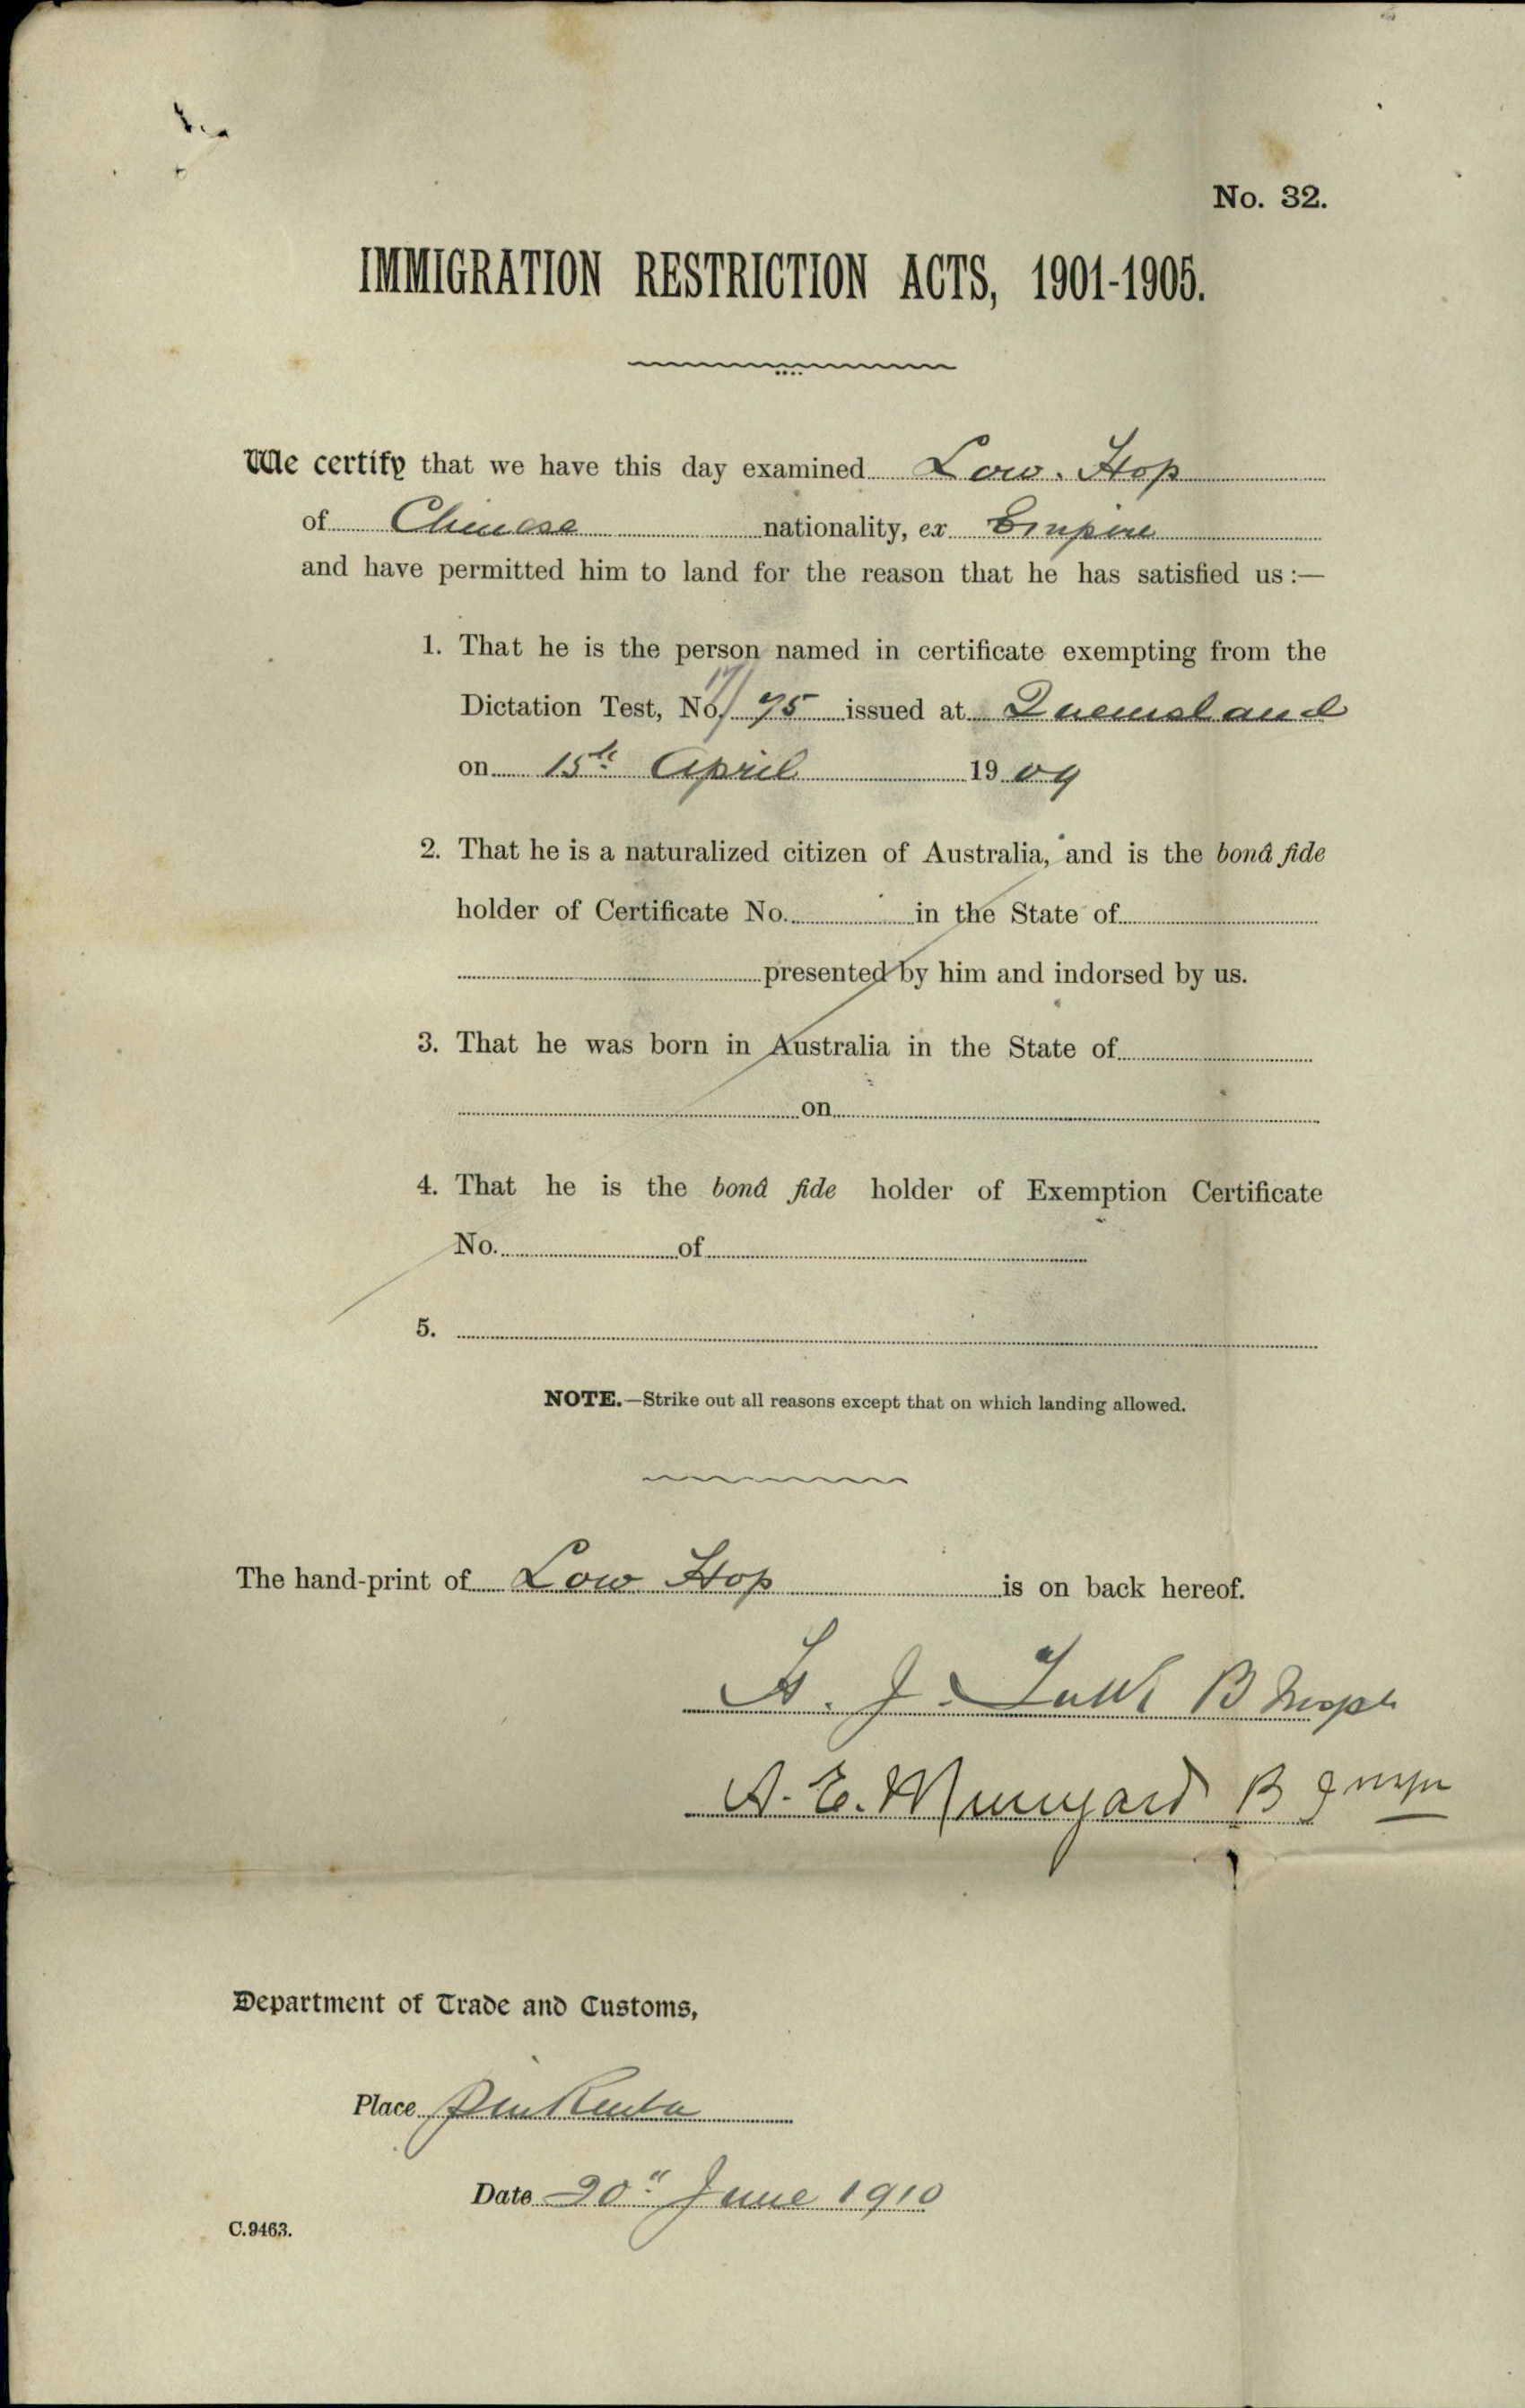 No. 32.
IMMIGRATION RESTRICTION ACTS, 1901-1905.
We certify that we have this day examined Low Hop
of Chinese nationality, ex Empire
and have permitted him to land for the reason that he has satisfied us :—
1. That he is the person named in certificate exempting from the
Dictation Test, No. 75 issued at Queensland
on 15th April 1909
2. That he is a naturalized citizen of Australia, and is the bonâ fide
holder of Certificate No. in the State of
presented by him and indorsed by us.
3. That he was born in Australia in the State of
on
4. That he is the bonâ fide holder of Exemption Certificate
No. of
5.
NOTE.—Strike out all reasons except that on which landing allowed.
The hand-print of Low Hop is on back hereof.
J. B
A. E. B
Department of Trade and Customs,
Place Pinkenba
Date 20th June 1910
C.9463.